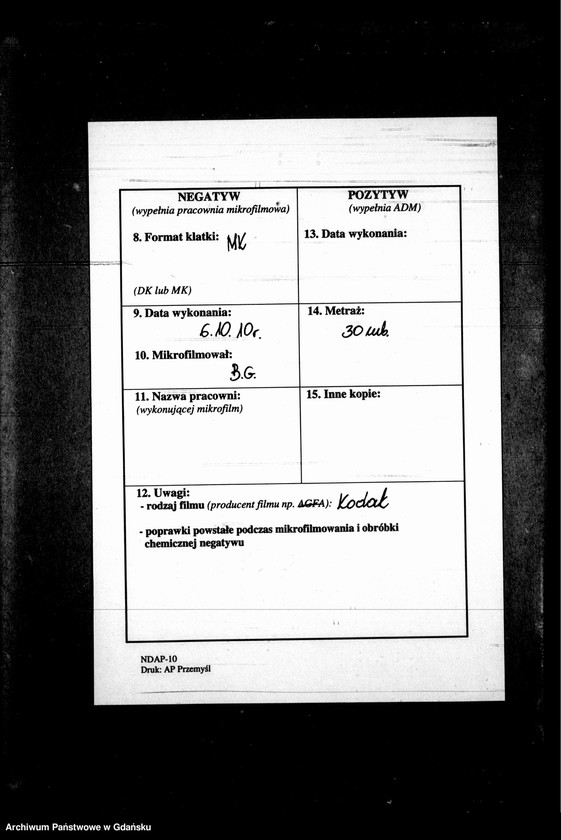 NEGATYW
(wypełnia pracownia mikrofilmowa)
8. Format klatki: MK
(DK lub MK)
9. Data wykonania:
6.10.10r.
10. Mikrofilmował:
B.G.
11. Nazwa pracowni:
(wykonującej mikrofilm)
POZYTYW
(wypełnia ADM)
13. Data wykonania:
14. Metraż:
30 mb.
15. Inne kopie:
12. Uwagi:
- rodzaj filmu (producent filmu np. AGFA): Kodak
- poprawki powstałe podczas mikrofilmowania i obróbki
chemicznej negatywu
NDAP-10
Druk: AP Przemyśl
Archiwum Państwowe w Gdańsku